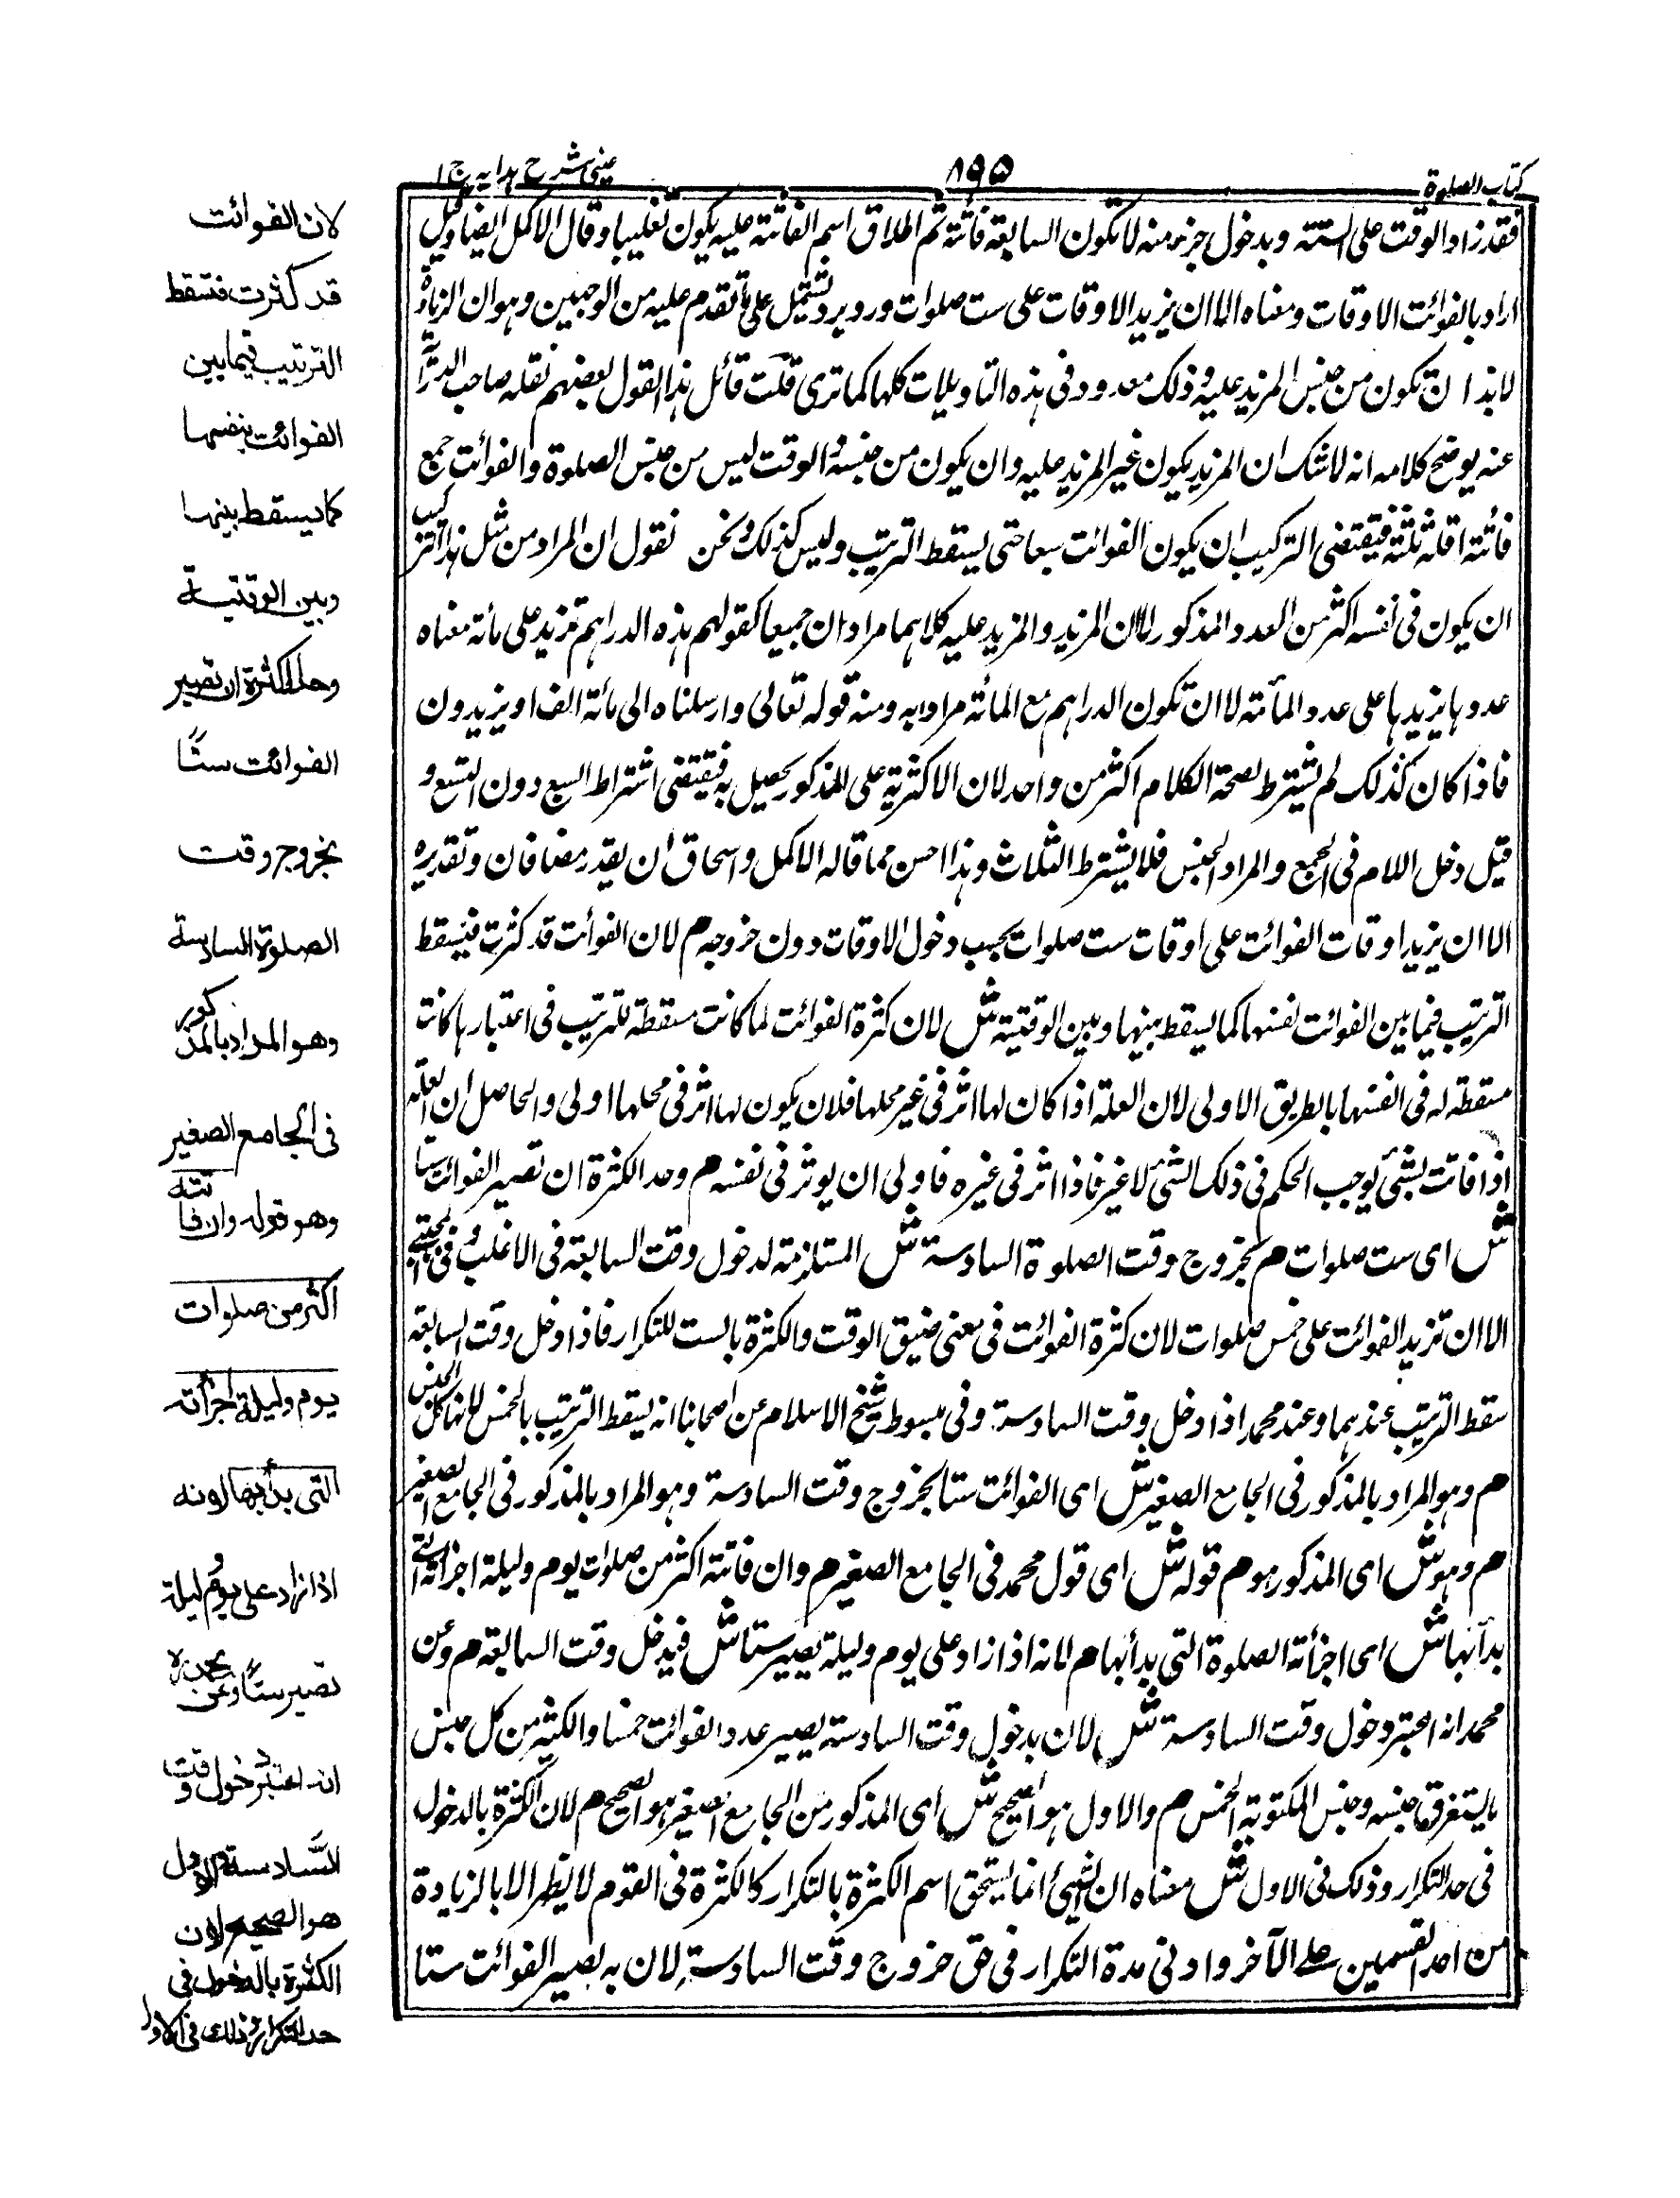 كتاب الصلوة
٨٩٥
عينى شرح هدايه ج ١
فقد زاد الوقت على الستة وبدخول جزء منه لا تكون السابعة فائتة ثم اطلاق اسم الفائتة عليه يكون تغليبا وقال الاكمل ايضا وقيل
اراد بالفوائت الاوقات ومعناه الا ان يزيد الاوقات على ست صلوات ورد بردّ تشتمل على ما تقدم عليه من الوجهين وهو ان الزيادة
لا بد ان تكون من جنس المزيد عليه وذلك معدود فى هذه التاويلات كلها كما ترى قلت قائل هذا القول بعضهم نقله صاحب الدراية
عنه يوضح كلامه انه لا شك ان المزيد يكون غير المزيد عليه وان يكون من جنسه والوقت ليس من جنس الصلوة والفوائت جمع
فائتة اقله ثلثة فيقتضى التركيب ان يكون الفوائت سبعا حتى يسقط الترتيب وليس كذلك ونحن نقول ان المراد من مثل هذا التركيب
ان يكون فى نفسه اكثر من العدد المذكور لا ان المزيد والمزيد عليه كلاهما مرادان جميعا كقولهم هذه الدراهم تزيد على مائة معناه
عددها يزيد على عدد المأئة لا ان تكون الدراهم مع المائة مرادا به ومنه قوله تعالى وارسلناه الى مائة الف او يزيدون
فاذا كان كذلك لم يشترط لصحة الكلام اكثر من واحد لان الاكثرية على المذكور يحصل به فيقتضى اشتراط السبع دون التسع و
قيل دخل اللام فى الجمع والمراد الجنس فلا يشترط الثلاث وهذا احسن مما قاله الاكمل واسحاق ان يقدر مضافان وتقديره
الا ان يزيد اوقات الفوائت على اوقات ست صلوات بحسب دخول الاوقات دون خروجه م لان الفوائت قد كثرت فيسقط
الترتيب فيما بين الفوائت نفسها كما يسقط بينها وبين الوقتية ش لان كثرة الفوائت لما كانت مسقطة للترتيب فى اعتبارها كانت
مسقطة له فى انفسها بالطريق الاولى لان العلة اذا كان لها اثر فى غير محلها فلان يكون لها اثر فى محلها اولى والحاصل ان العلة
اذا فاتت بشئ يوجب الحكم فى ذلك الشئ لا غير فاذا اثر فى غيره فاولى ان يوثر فى نفسه م وحد الكثرة ان تصير الفوائت ستا
ش اى ست صلوات م بخروج وقت الصلوة السادسة ش المستلزمة لدخول وقت السابعة فى الاغلب وفى المجتبى
الا ان تزيد الفوائت على خمس صلوات لان كثرة الفوائت فى معنى ضيق الوقت والكثرة بالست للتكرار فاذا دخل وقت السابعة
سقط الترتيب عندهما وعند محمد اذا دخل وقت السادسة وفى مبسوط شيخ الاسلام عن اصحابنا انه يسقط الترتيب بالخمس لانها كل الجنس
م وهو المراد بالمذكور فى الجامع الصغير ش اى الفوائت ستا بخروج وقت السادسة وهو المراد بالمذكور فى الجامع الصغير
م وهو ش اى المذكور هو م قوله ش اى قول محمد فى الجامع الصغير م وان فاتته اكثر من صلوات يوم وليلة اجزأته التى
بدأ بها ش اى اجزأته الصلوة التى بدأ بها م لانه اذا زاد على يوم وليلة يصير ستا ش فيدخل وقت السابعة م وعن
محمد انه اعتبر دخول وقت السادسة ش لان بدخول وقت السادسة يصير عدد الفوائت خمسا والكثير من كل جنس
ما يستغرق جنسه وجنس المكتوبة الخمس م والاول هو الصحيح ش اى المذكور من الجامع الصغير هو الصحيح م لان الكثرة بالدخول
فى حد التكرار وذلك فى الاول ش معناه ان الشئ انما يستحق اسم الكثرة بالتكرار كالكثرة فى القوم لا يظهر الا بالزيادة
من احد القسمين على الآخر وادنى مدة التكرار فى حق خروج وقت السادسة لان به يصير الفوائت ستا
لان الفوائت
قد كثرت فتسقط
الترتيب فيما بين
الفوائت بنفسها
كما يسقط بينها
وبين الوقتية
وحد الكثرة ان تصير
الفوائت ستًا
بخروج وقت
الصلوة السادسة
وهو المراد بالمذكور
فى الجامع الصغير
وهو قوله وان فاتته
اكثر من صلوات
يوم وليلة اجزأته
التى بدأ بها لانه
اذا زاد على يوم وليلة
تصير ستًا وعن محمدره
انه اعتبر دخول وقت
السّادسة والاول
هو الصحيح لان
الكثرة بالدخول فى
حد التكرار وذلك فى الاول